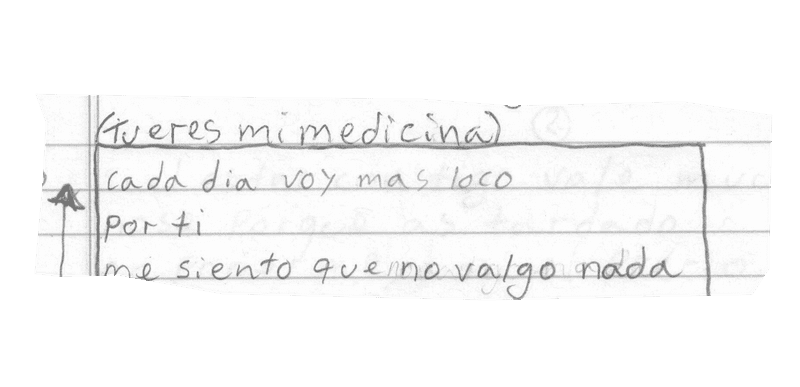 (tu eres mi medicina)
cada dia voy mas loco
por ti
me siento que no valgo nada